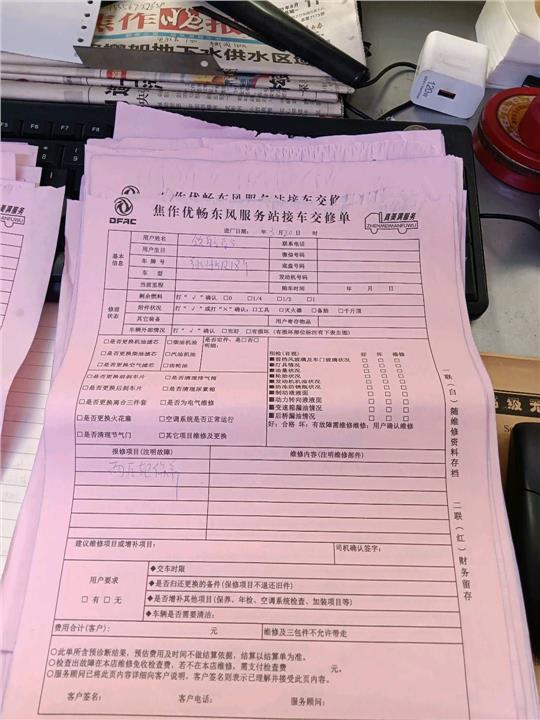 焦作
水供水区
120W
F5 F6 F7 F8
焦作优畅东风服务站接车交修
DFAC
焦作优畅东风服务站接车交修单
真美满服务
ZHENMEIMANFUWU
进厂日期: 年 3 月 20 日 时
基本信息
用户姓名
联系电话
用户生日
微信号码
车牌号
底盘号码
车型
发动机号
当前里程
购车时间 年 月 日
修前状态
剩余燃料 打“√”确认 □0 □1/4 □1/2 □1
附件状况 打“√”或打“×”确认:□工具 □灭火器 □备胎 □千斤顶
其它装备 用户寄存物品
车辆外部情况 打“√”确认 □完好 □有损坏(有损坏部位标注右下表注图)
□是否更换机油滤芯 □柴油机油
是否定件、是□否□
明细:
□是否更换柴油滤芯 □汽油机油
□是否更换空气滤芯 □齿轮油
□是否更换前刹车片 □是否清理排气筒
□是否更换后刹车片 □是否清理尿素箱
□是否更换离合三件套 □是否为电气维修
□是否更换火花塞 □空调系统是否正常运行
□是否清理节气门 □其它项目维修及更换
预检(目视) 好 坏 维修
■前挡风玻璃及车门玻璃状况 □ □ □
■灯具情况 □ □ □
■油量状况 □ □ □
■轮胎状况 □ □ □
■发动机机油状况 □ □ □
■防冻冷销瓶状况 □ □ □
■制动液液面 □ □ □
■动力转向液液面 □ □ □
■变速箱漏油情况 □ □ □
■后桥漏油情况 □ □ □
好:合格 坏:有故障需维修维修:用户确认维修
报修项目(注明故障)
维修内容(注明维修部件)
建议维修项目或增补项目:
司机确认签字:
用户要求
□有 □无
◆交车时限
◆是否归还更换的备件(保修项目不退还旧件)
◆是否增补其他项目(保养、年检、空调系统检查、加装项目等)
◆车辆是否需要清洁:
费用合计(客户): 元
维修及三包件不允许带走
○此单所含预诊断结果,预估费用及时间不做结算依据,结算以结算单为准。
○检查出故障在本店维修免收检查费、若不在本店维修、需支付检查费 元。
○服务顾问已将此页内容详细向客户说明,客户签名则表示已理解并接受此页内容。
客户签名: 客户电话: 服务顾问:
一联(白)随维修资料存档
二联(红)财务留存